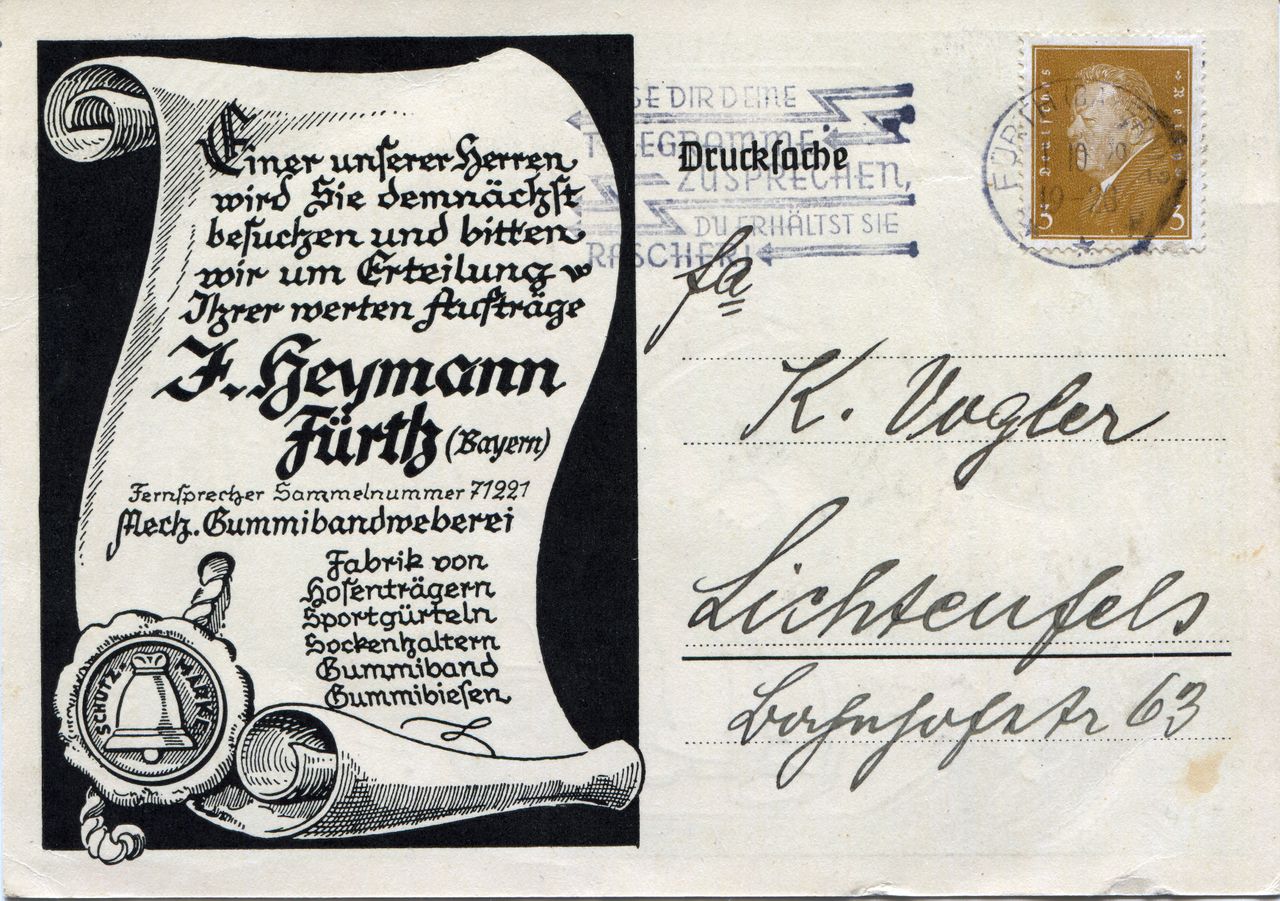 Einer unserer Herren
wird Sie demnächst
besuchen und bitten
wir um Erteilung
Ihrer werten Aufträge
J. Heymann
Fürth (Bayern)
Fernsprecher Sammelnummer 71221
Mech. Gummibandweberei
Fabrik von
Hosenträgern
Sportgürteln
Sockenhaltern
Gummiband
Gummibiesen
SCHUTZ-MARKE
GE DIR DEINE
TELEGRAMME
ZUSPRECHEN,
DU ERHÄLTST SIE
RASCHER!
Drucksache
Deutsches Reich
3 3
FÜRTH (BAYERN)
19-20
fa
K. Vogler
Lichtenfels
Bahnhofstr 63